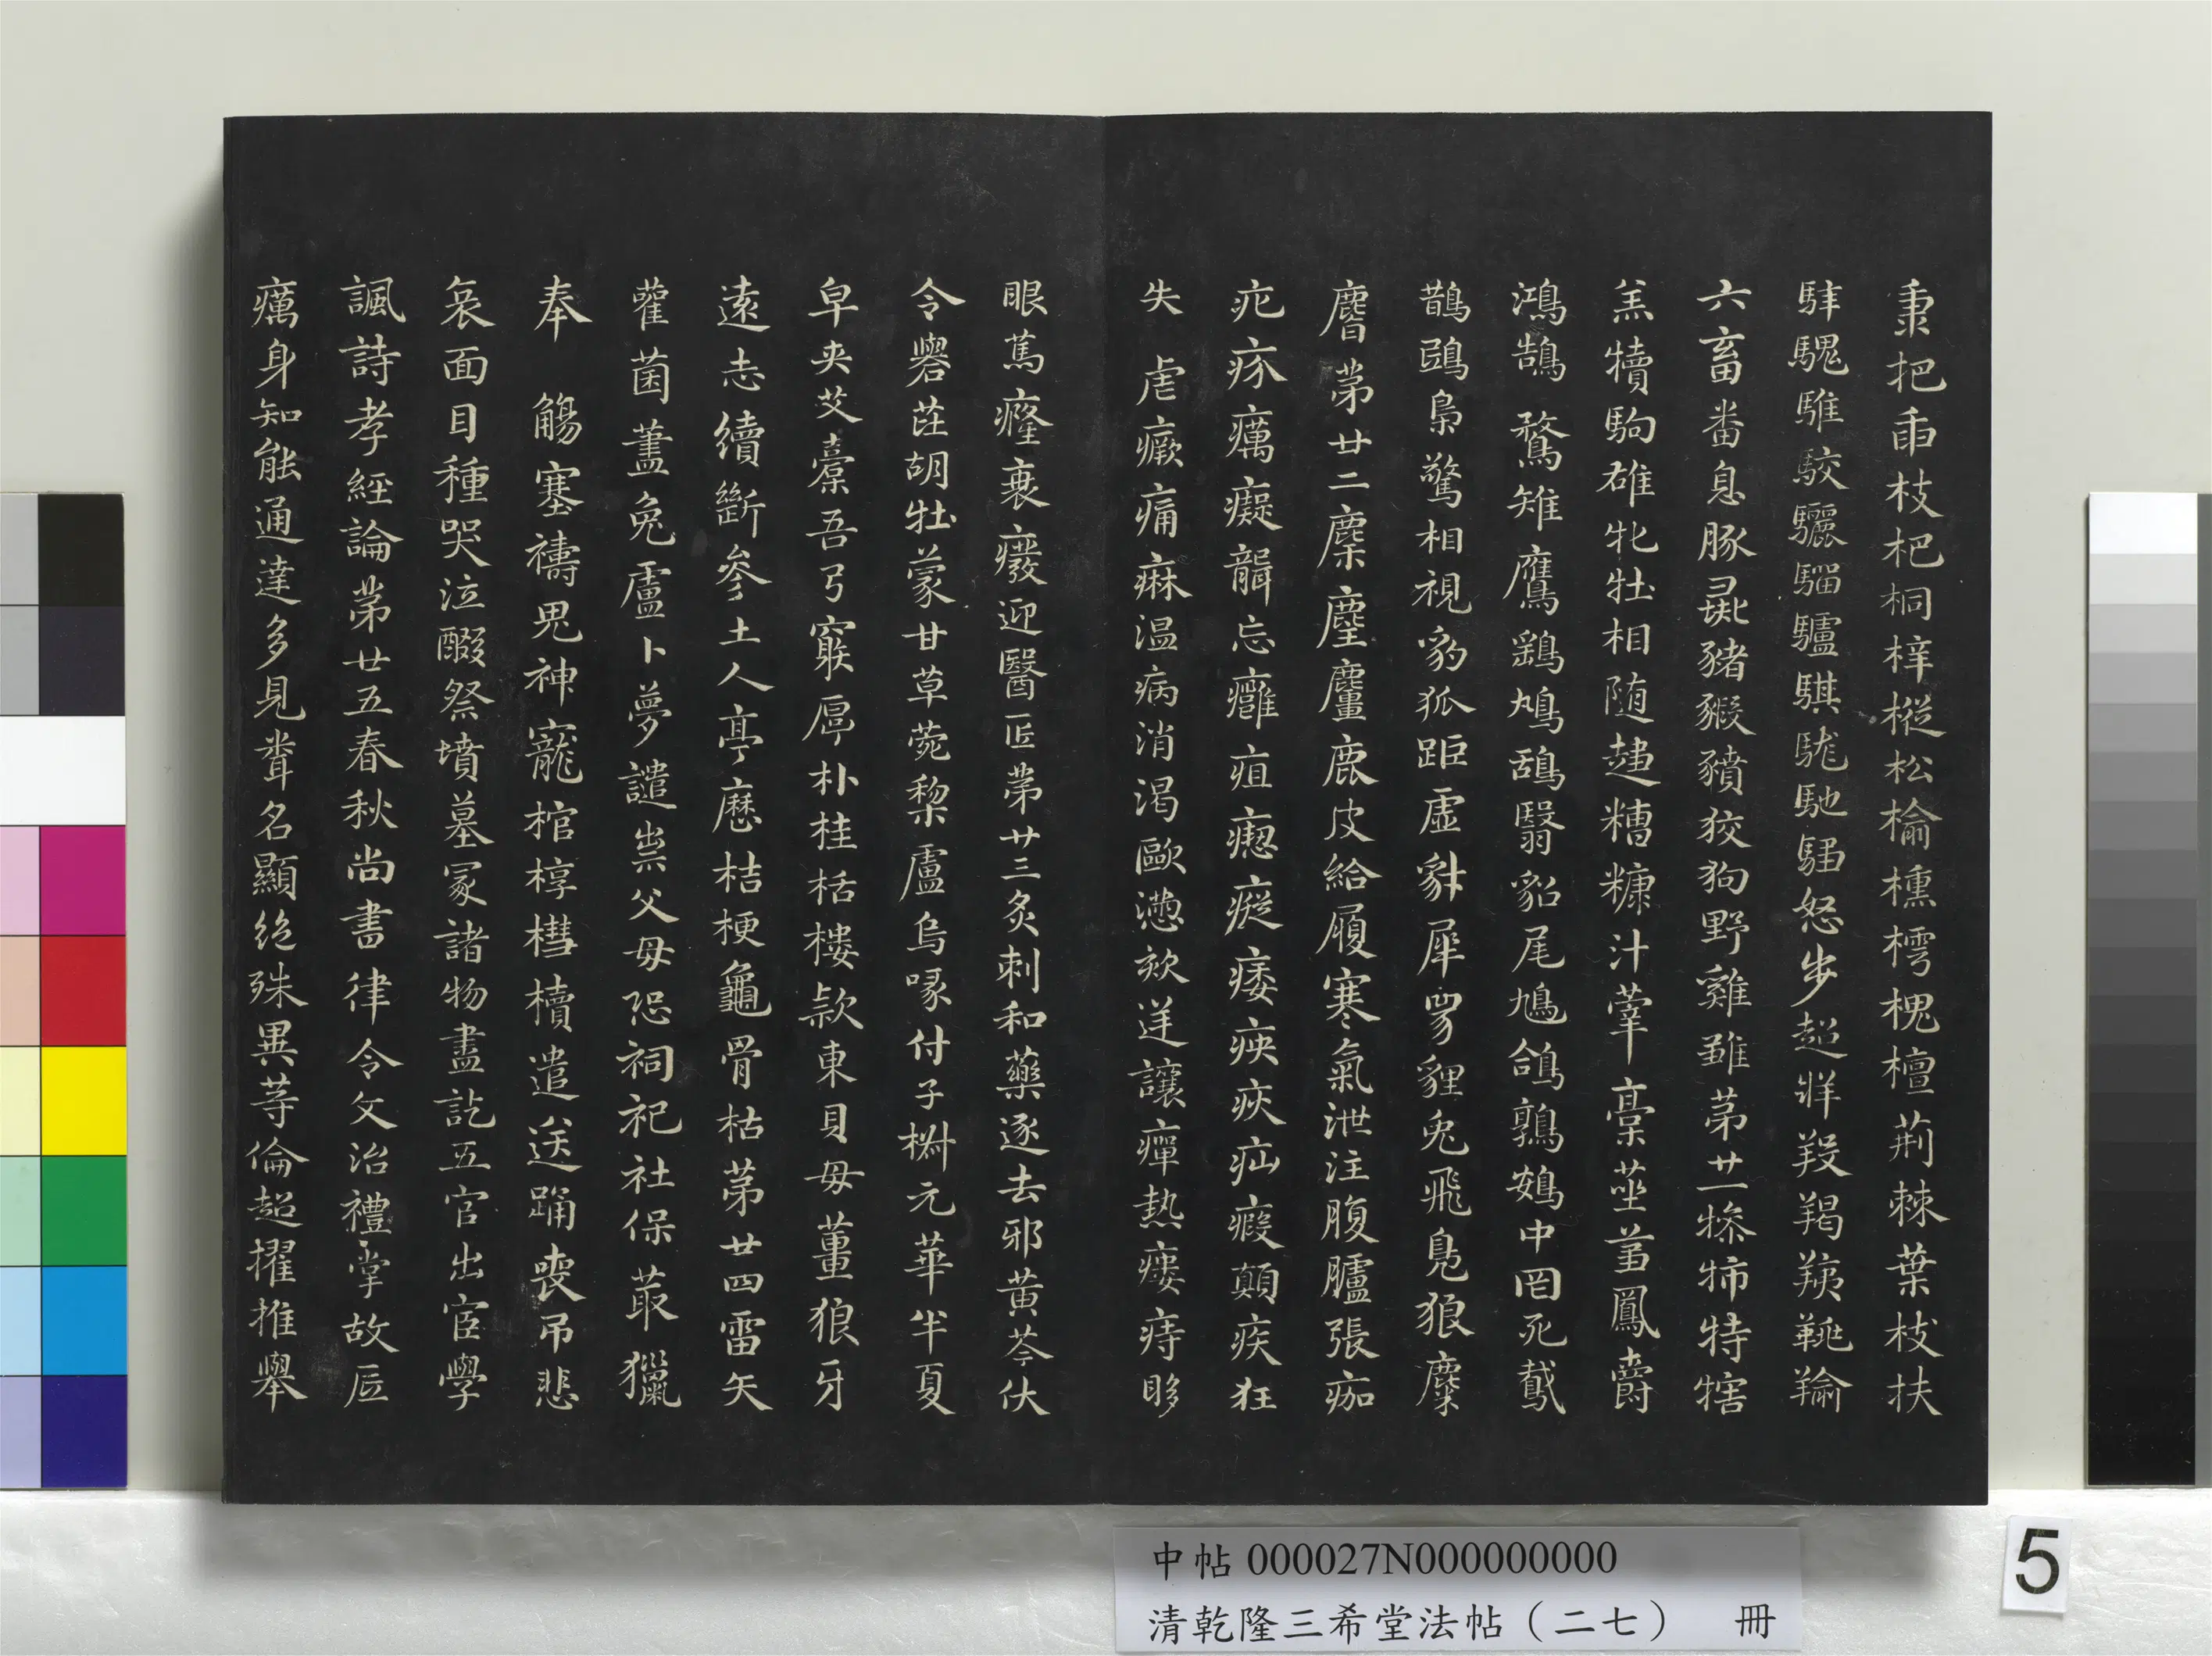 秉把𠧟枝杷桐梓樅松榆櫄樗槐檀荆棘葉枝扶
騂騩騅駮驪騮驢騏駹馳騷怒步超牂羖羯羠䍮羭
六畜畨息豚彘豬豭豶狡狗野雞雖苐廿一㹊㸬特犗
羔犢駒雄牝牡相随趍糟糠汁葦稾莝芻鳳爵
鴻鵠鶩雉鷹鷂鳩鴰翳貂尾鳩鴿鶉鴳中罔死戴
鵲鴟梟驚相視豹狐距虚豺犀兕貍兔飛鳧狼麋
麕苐廿二麇麈麠鹿皮給履寒氣泄注腹臚張痂
疕疥癘癡聾忘癰疽瘛瘲痿疾疢疝瘕顛疾狂
失 虐瘚痛痳温病消渴歐懣欬逆讓癉熱瘻痔眵
眼䓪癃衰癈迎醫匠苐廿三炙刺和藥逐去邪黄芩伏
令礜茈胡牡蒙甘草菀藜盧烏喙付子椒元華半夏
皁夾艾橐吾弓窮厚朴桂栝樓款東貝毋薑狼牙
遠志續斷參土人亭歷桔梗龜骨枯苐廿四雷矢
雚菌藎兔盧卜夢譴祟父毋恐祠祀社保叢獵
奉 觴塞禱鬼神寵棺椁槥櫝遣送踊喪吊悲
哀面目種哭泣醊祭墳墓冢諸物盡訖五官出宦學
諷詩孝經論苐廿五春秋尚書律令文治禮掌故厎
癘身知能通達多見聋名顯絶殊異等倫超擢推舉
中帖 000027N000000000
清乾隆三希堂法帖（二七） 冊
5